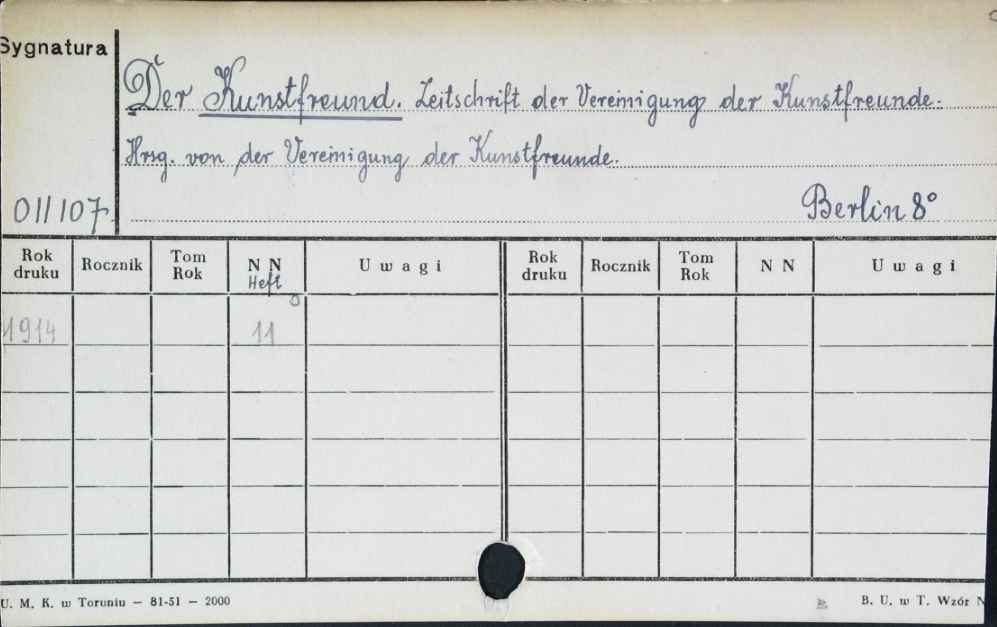 Sygnatura
Der Kunstfreund. Zeitschrift der Vereinigung der Kunstfreunde.
Hrsg. von der Vereinigung der Kunstfreunde.
011107
Berlin 8°
Rok druku Rocznik Tom Rok N N Heft U w a g i Rok druku Rocznik Tom Rok N N U w a g i
1914 11
U. M. K. w Toruniu — 81-51 — 2000
B. U. w T. Wzór N